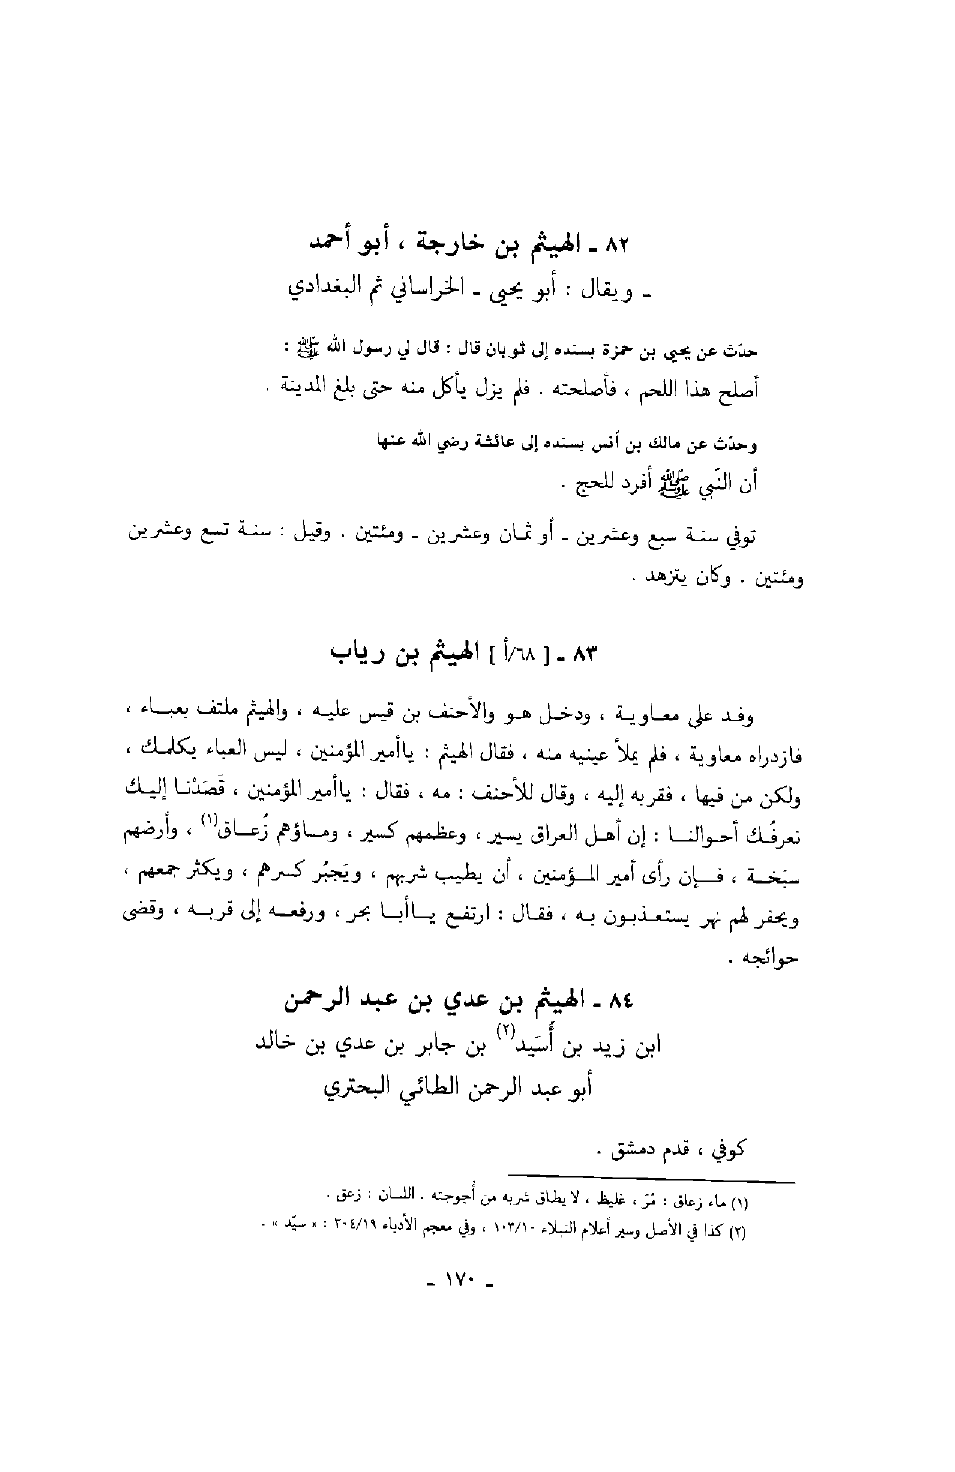 ٨٢ ـ الهيثم بن خارجة ، أبو أحمد
ـ ويقال : أبو يحيى ـ الخراساني ثم البغدادي
حدّث عن يحيى بن حمزة بسنده إلى ثوبان قال : قال لي رسول الله ﷺ :
أصلح هذا اللحم ، فأصلحته . فلم يزل يأكل منه حتى بلغ المدينة .
وحدّث عن مالك بن أنس بسنده إلى عائشة رضي الله عنها
أن النّبي ﷺ أفرد للحج .
توفي سنة سبع وعشرين ـ أو ثمان وعشرين ـ ومئتين . وقيل : سنة تسع وعشرين
ومئتين . وكان يتزهد .
٨٣ ـ [ ٦٨/أ ] الهيثم بن رياب
وفد على معاوية ، ودخل هو والأحنف بن قيس عليه ، والهيثم ملتف بعباء ،
فازدراه معاوية ، فلم يملأ عينيه منه ، فقال الهيثم : ياأمير المؤمنين ، ليس العباء يكلمك ،
ولكن من فيها ، فقربه إليه ، وقال للأحنف : مه ، فقال : ياأمير المؤمنين ، قَصَدْنا إليك
نعرفُك أحوالنا : إن أهل العراق يسير ، وعظمهم كسير ، وماؤهم زُعاق(١) ، وأرضهم
سبَخة ، فإن رأى أمير المؤمنين ، أن يطيب شربهم ، ويَجبُر كسرهم ، ويكثر جمعهم ،
ويحفر لهم نهر يستعذبون به ، فقال : ارتفع ياأبا بحر ، ورفعه إلى قربه ، وقضى
حوائجه .
٨٤ ـ الهيثم بن عدي بن عبد الرحمن
ابن زيد بن أُسَيد(٢) بن جابر بن عدي بن خالد
أبو عبد الرحمن الطائي البحتري
كوفي ، قدم دمشق .
(١) ماء زعاق : مُرّ ، غليظ ، لا يطاق شربه من أُجوجته . اللسان : زعق .
(٢) كذا في الأصل وسير أعلام النبلاء ١٠٣/١٠ ، وفي معجم الأدباء ٣٠٤/١٩ : « سيّد » .
ـ ١٧٠ ـ